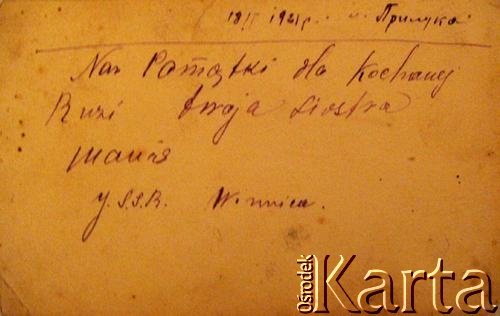 18/II 1921 р. м. Прилука
Na Pamiątki dla Kochanej
Ruzi twoja siostra
Mania
U.S.S.R. Winnica.
Ośrodek
Karta